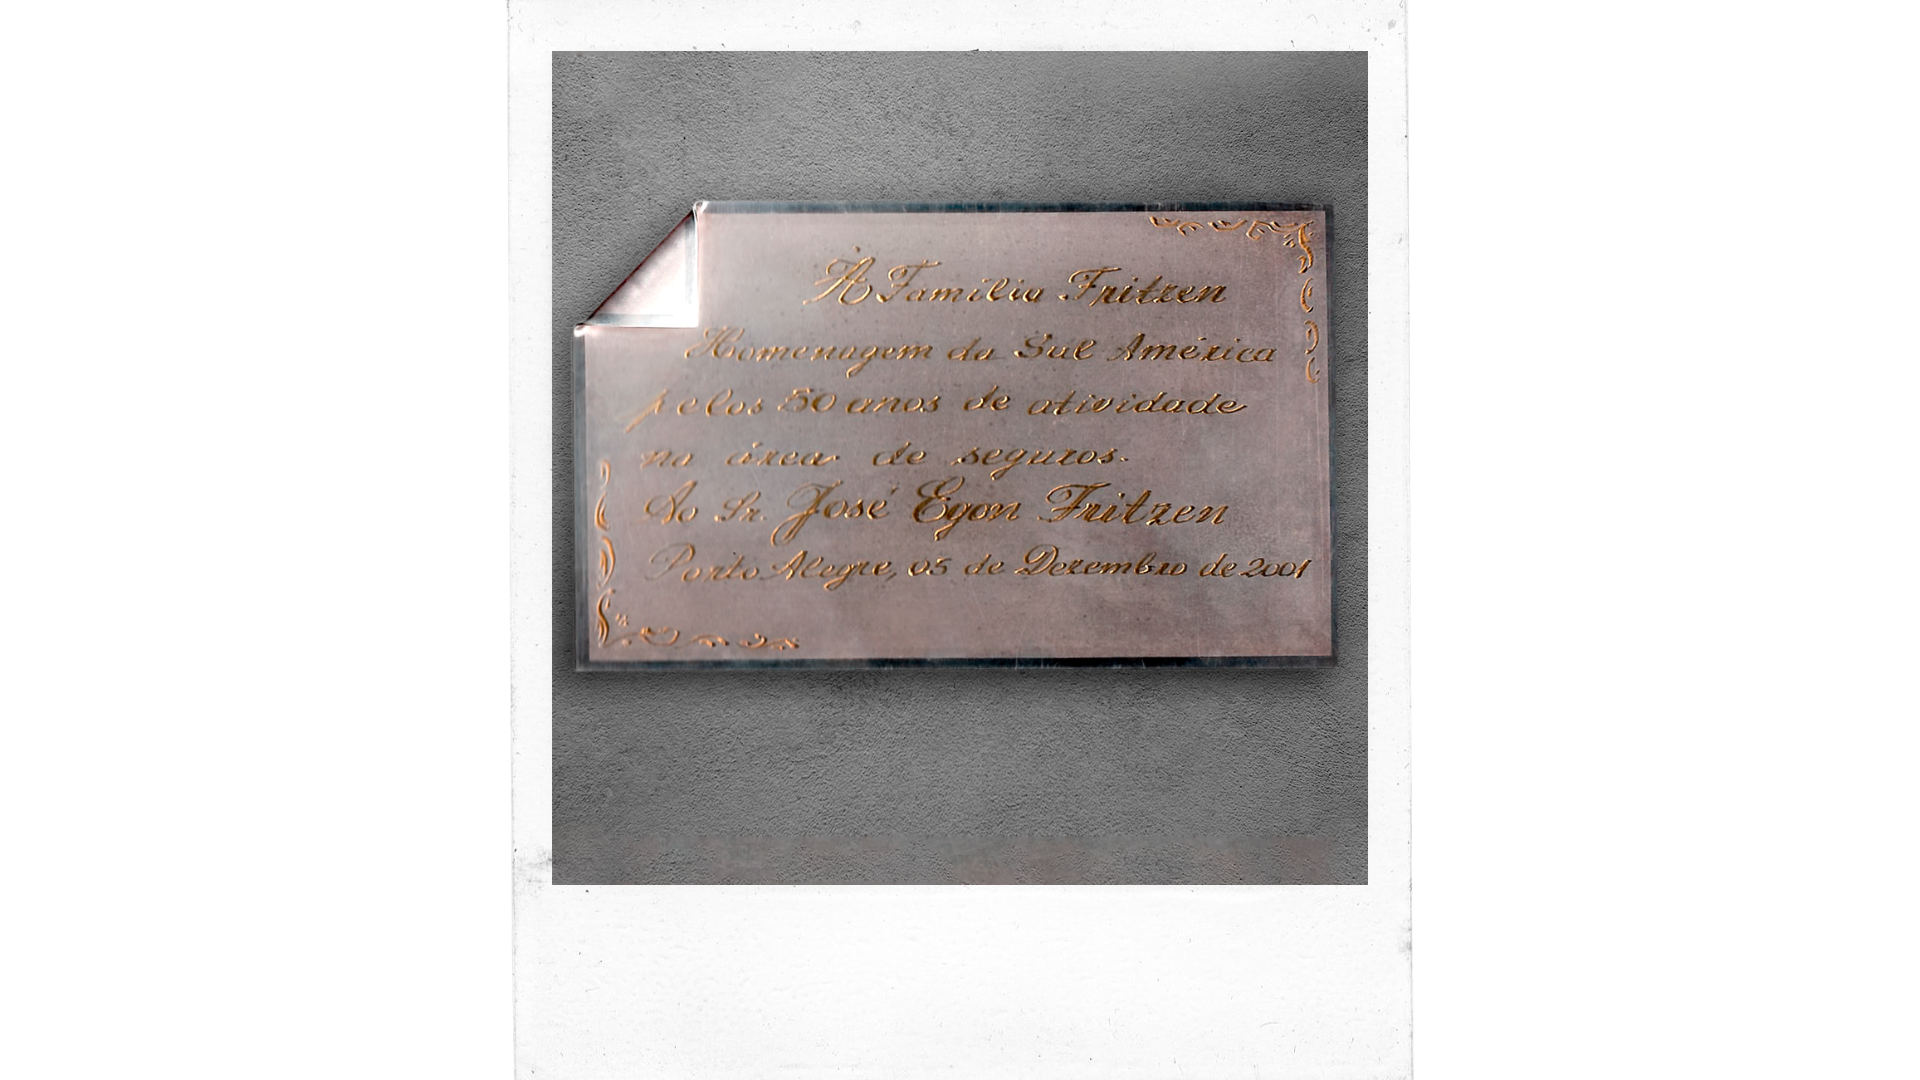 À Família Fritzen
Homenagem da Sul América
pelos 50 anos de atividade
na área de seguros.
Ao Sr. José Egon Fritzen
Porto Alegre, 05 de Dezembro de 2001